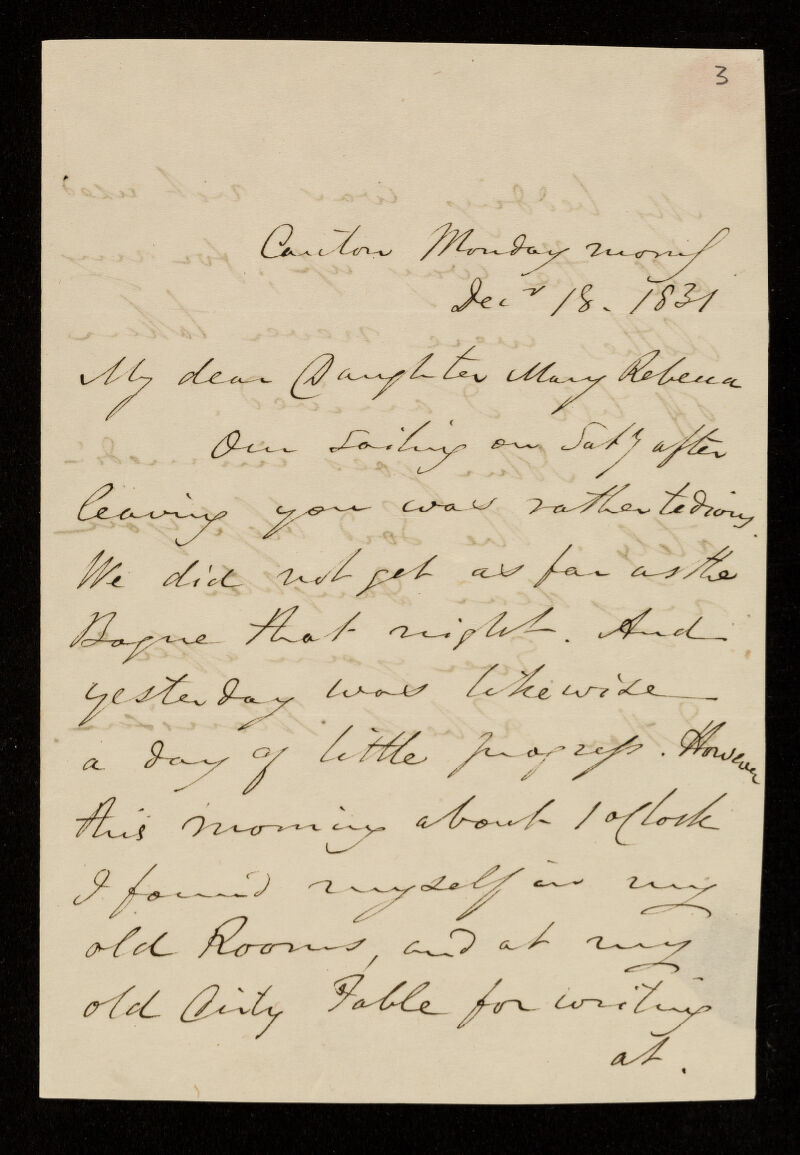 3
Canton Monday morng
Decr 18. 1831
My dear Daughter Mary Rebecca
Our sailing on Saty after
leaving you was rather tedious.
We did not get as far as the
Bogue that night. And
yesterday was likewise
a day of little progress. However
this morning about 1 oClock
I found myself in my
old Rooms, and at my
old Dirty Table for writing
at.